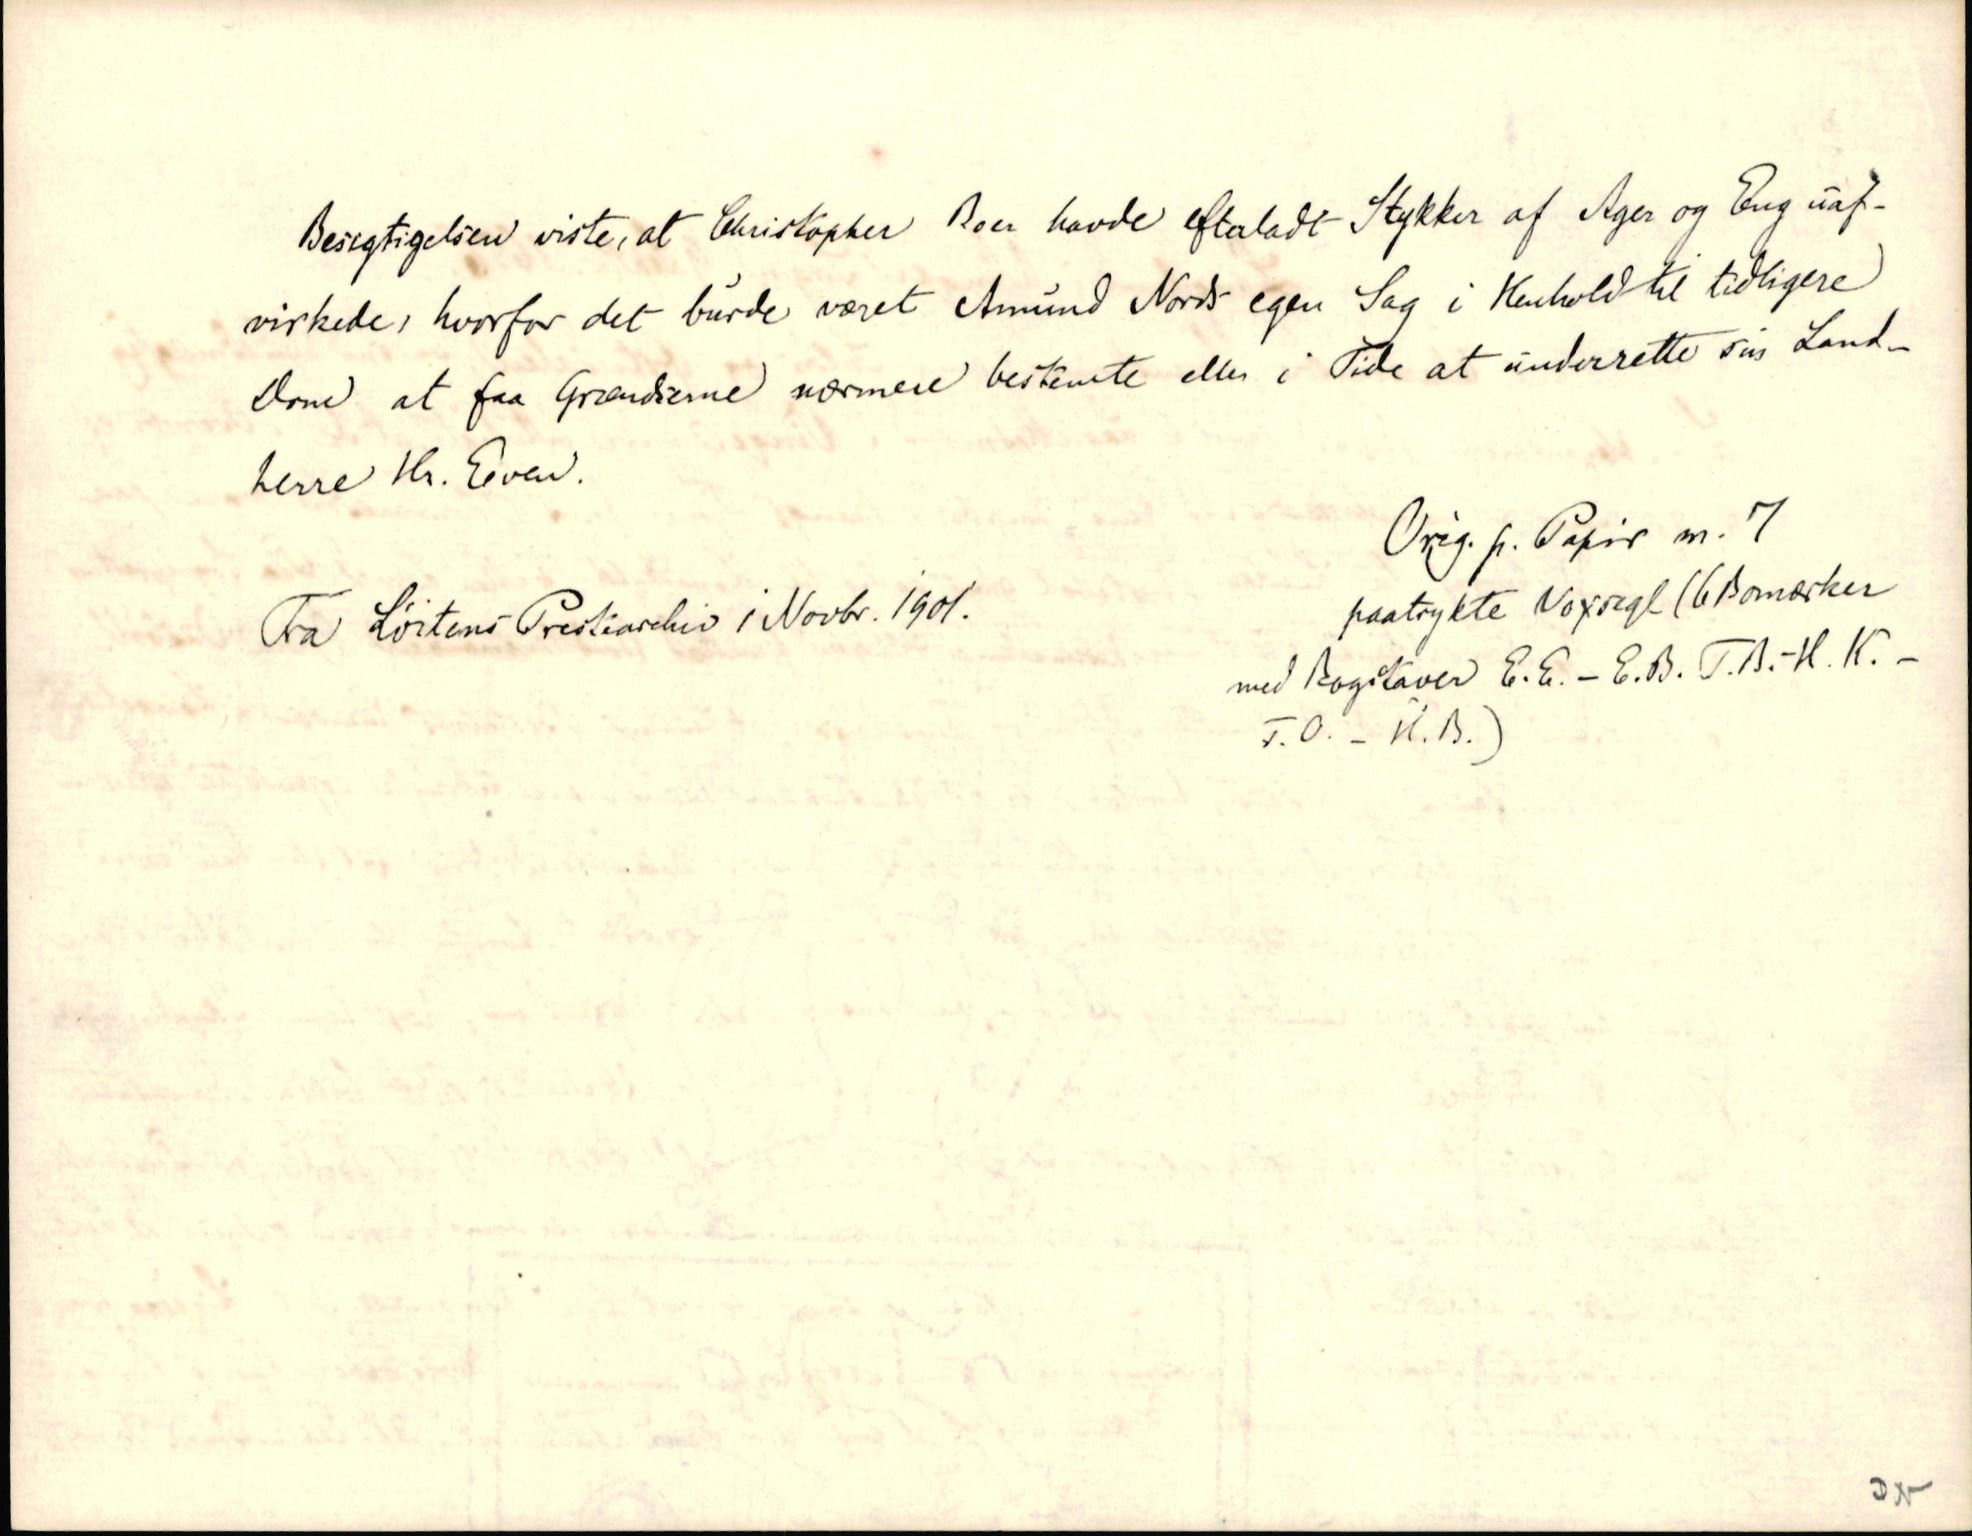 Besigtigelsen viste, at Christopher Boer havde efterladt Stykker af Ager og Eng uaf-
virkede, hvorfor det burde været Amund Nords egen Sag i Henhold til tidligere
Dom at faa Grændserne nærmere bestemte eller i Tide at underrette sin Land-
herre Hr. Even.
Orig. p. Papir m. 7
paatrykte Voxsegl (6 Bomærker
Fra Löitens Prestearchiv i Novbr. 1901.
med Bogstaver E.E. – E.B. T.B. – H.K. –
T.O. – H.B.)
DN